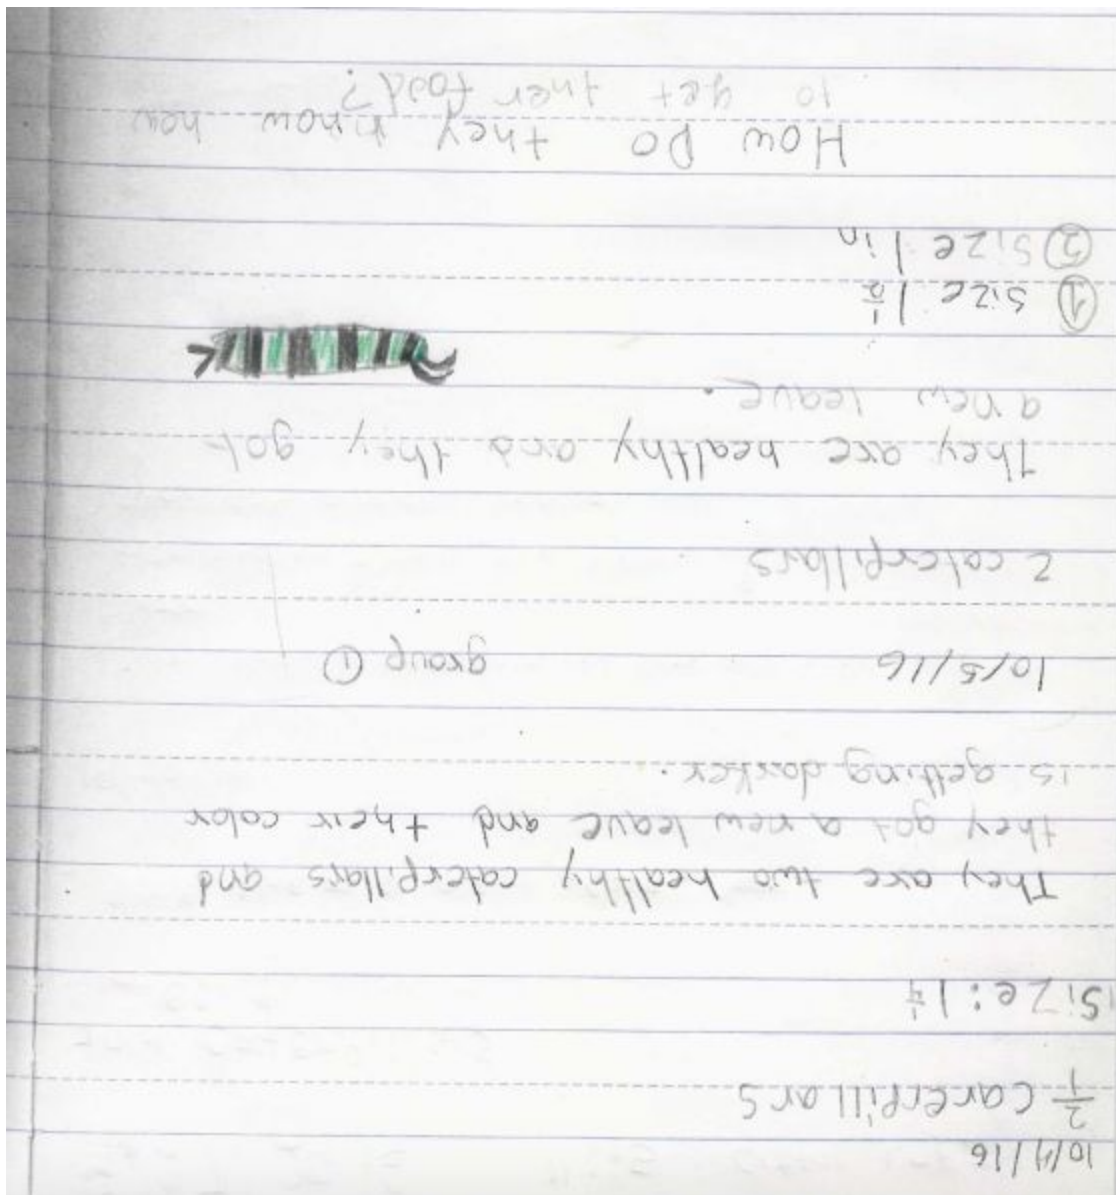 10/4/16
2/1 Caterpillars
Size: 1 1/4
They are two healthy caterpillars and
they got a new leave and their color
is getting darker.
10/5/16 group ①
2 caterpillars
they are healthy and they got
a new leave.
① size 1 1/2
② Size 1 in
How Do they know how
to get ther food?